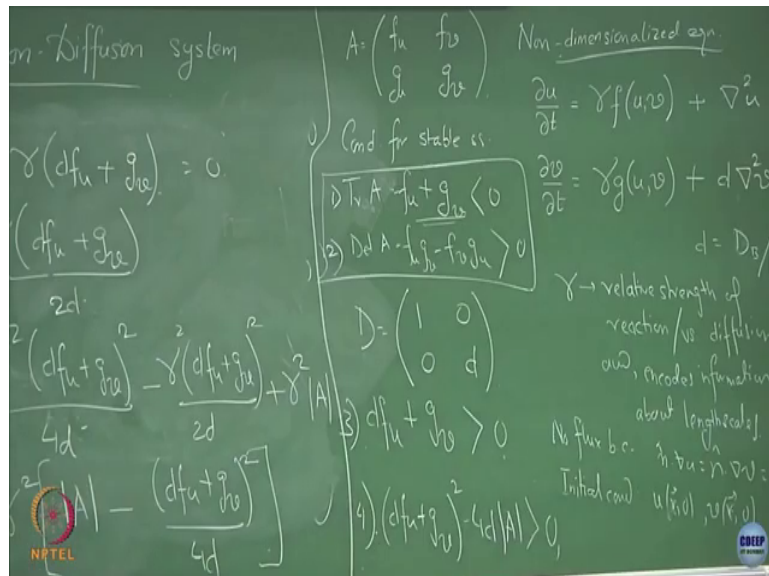 on-Diffusion system
γ(dfᵤ + gᵥ) = 0
(dfᵤ + gᵥ)
2d
² (dfᵤ + gᵥ)² - γ² (dfᵤ + gᵥ)² + γ² |A|
4d 2d
γ² [ |A| - (dfᵤ + gᵥ)² ]
4d
A = ( fᵤ fᵥ
gᵤ gᵥ )
Cond for stable ss.
1) Tr A = fᵤ + gᵥ < 0
2) Det A = fᵤgᵥ - fᵥgᵤ > 0
D = ( 1 0
0 d )
3) dfᵤ + gᵥ > 0
4) (dfᵤ + gᵥ)² - 4d|A| > 0,
Non-dimensionalized eqn.
∂u/∂t = γf(u,v) + ∇²u
∂v/∂t = γg(u,v) + d∇²v
d = D_B/
γ → relative strength of
reaction/vs diffusion
and, encodes information
about lengthscales.
No flux b.c. n̂·∇u = n̂·∇v =
Initial cond u(r⃗,0), v(r⃗,0)
NPTEL
CDEEP
IIT BOMBAY